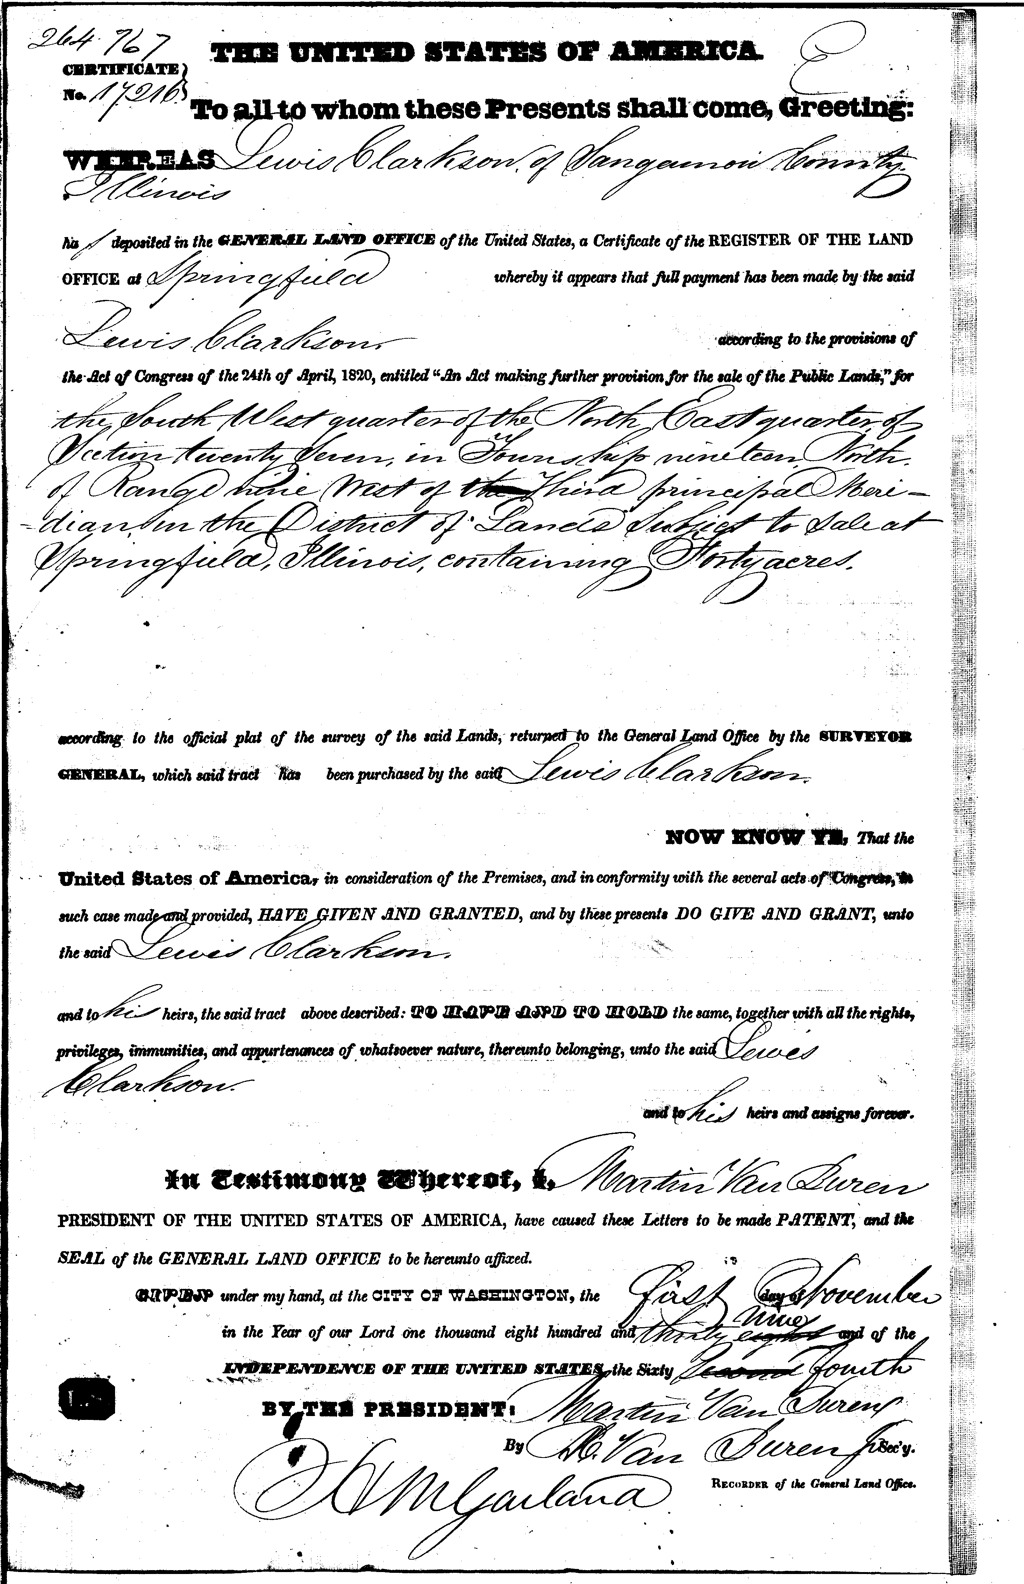 264 767
THE UNITED STATES OF AMERICA.
CERTIFICATE
No. 17216
To all to whom these Presents shall come, Greeting:
WHEREAS Lewis Clarkson, of Sangamon County,
Illinois
has deposited in the GENERAL LAND OFFICE of the United States, a Certificate of the REGISTER OF THE LAND
OFFICE at Springfield whereby it appears that full payment has been made by the said
Lewis Clarkson, according to the provisions of
the Act of Congress of the 24th of April, 1820, entitled "An Act making further provision for the sale of the Public Lands," for
the South West quarter of the North East quarter, of
Section twenty Seven, in Township nineteen, North,
of Range nine West of the Third principal Meri-
-dian, in the District of Lands Subject to Sale at
Springfield, Illinois, containing Forty acres.
according to the official plat of the survey of the said Lands, returned to the General Land Office by the SURVEYOR
GENERAL, which said tract has been purchased by the said Lewis Clarkson.
NOW KNOW YE, That the
United States of America, in consideration of the Premises, and in conformity with the several acts of Congress, in
such case made and provided, HAVE GIVEN AND GRANTED, and by these presents DO GIVE AND GRANT, unto
the said Lewis Clarkson.
and to his heirs, the said tract above described: TO HAVE AND TO HOLD the same, together with all the rights,
privileges, immunities, and appurtenances of whatsoever nature, thereunto belonging, unto the said Lewis
Clarkson.
and to his heirs and assigns forever.
In Testimony Whereof, I, Martin Van Buren
PRESIDENT OF THE UNITED STATES OF AMERICA, have caused these Letters to be made PATENT, and the
SEAL of the GENERAL LAND OFFICE to be hereunto affixed.
GIVEN under my hand, at the CITY OF WASHINGTON, the first day of November
in the Year of our Lord one thousand eight hundred and thirty eight nine and of the
INDEPENDENCE OF THE UNITED STATES, the Sixty Second fourth
BY THE PRESIDENT: Martin Van Buren
By Van Buren Jr Sec'y.
H M Garland RECORDER of the General Land Office.